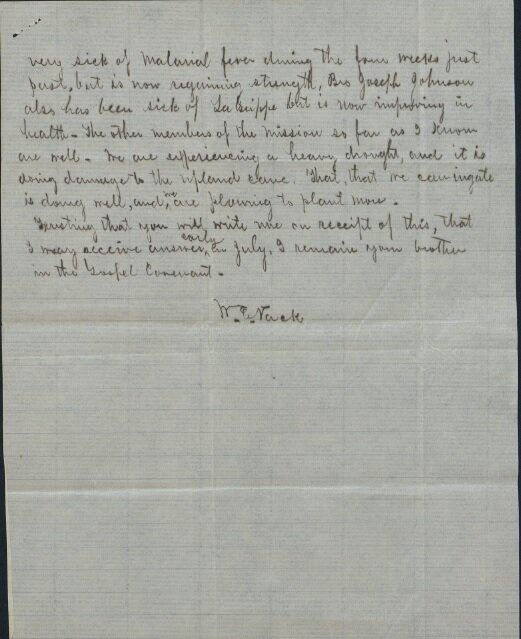 very sick of Malarial fever during the four weeks just
past, but is now regaining strength, Bro Joseph Johnson
also has been sick of La Grippe but is now improving in
health - The other members of the mission so far as I know
are well - We are experiencing a heavy drought, and it is
doing damage to the upland cane. That, that we can irrigate
is doing well, and we are planning to plant more -
Trusting that you will write me on receipt of this, that
I may receive answer early in July, I remain your brother
in the Gospel Covenant -
W. Nack